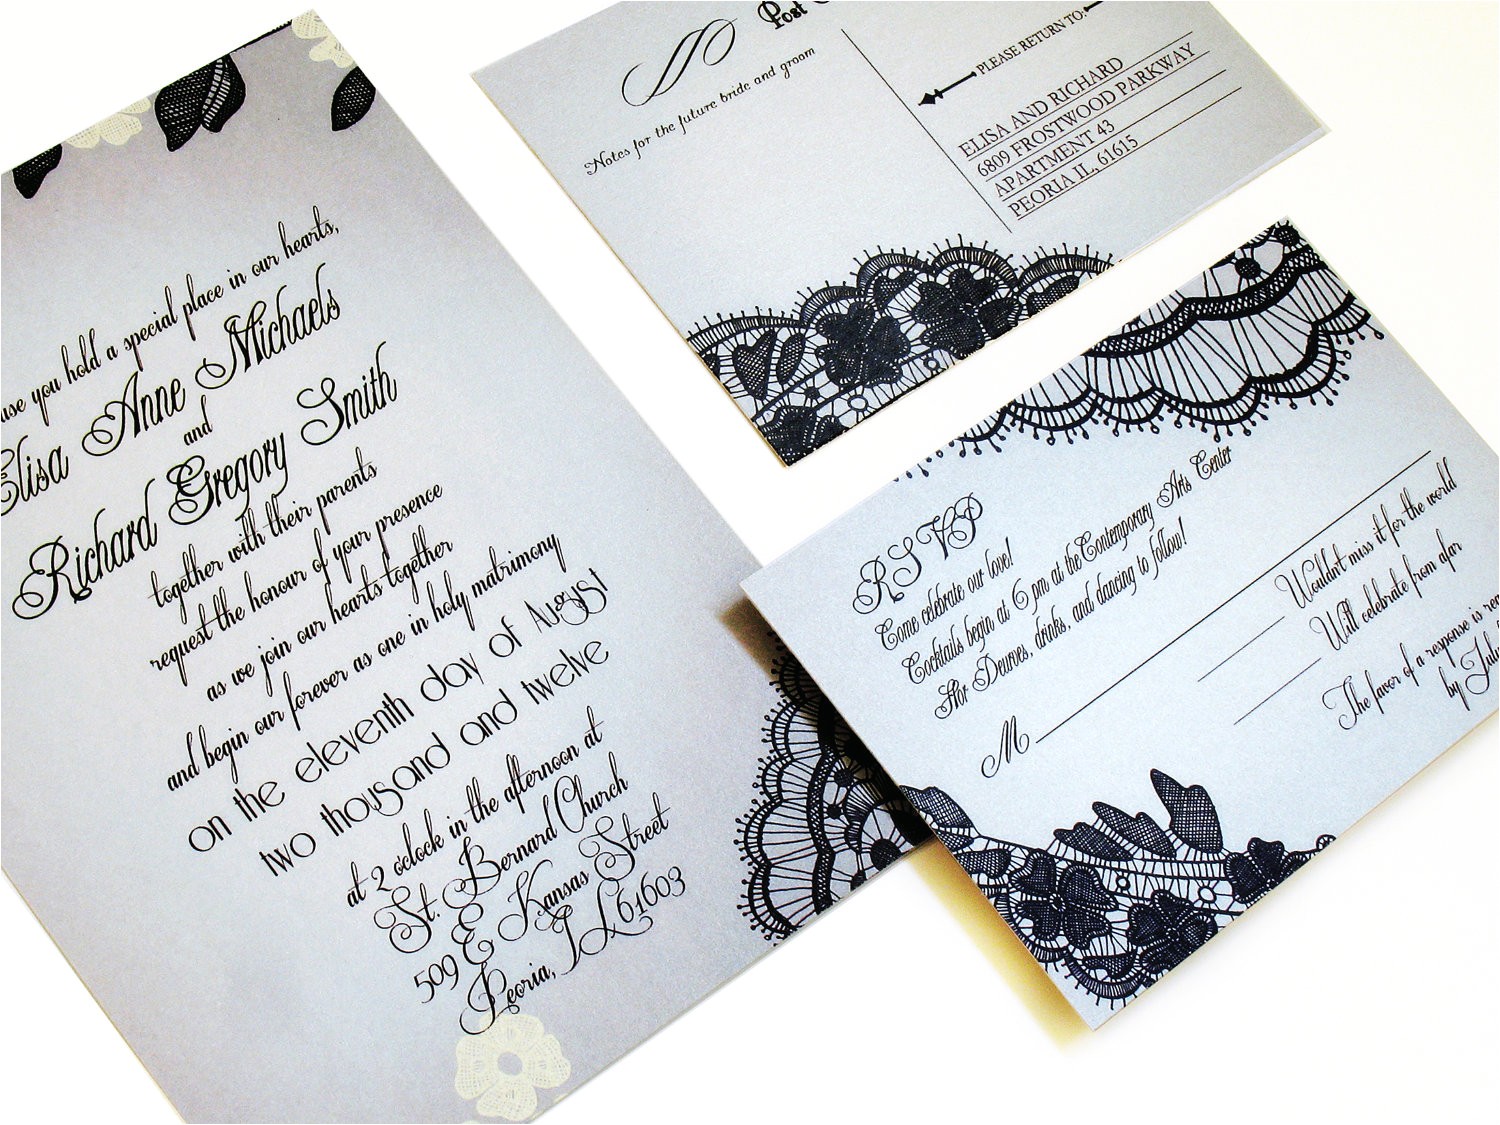 you hold a special place in our hearts,
Elisa Anne Michaels
and
Richard Gregory Smith
together with their parents
request the honour of your presence
as we join our hearts together
and begin our forever as one in holy matrimony
on the eleventh day of August
two thousand and twelve
at 2 o'clock in the afternoon at
St. Bernard Church
509 E Kansas Street
Peoria, IL 61603
Post
Notes for the future bride and groom
PLEASE RETURN TO:
ELISA AND RICHARD
6809 FROSTWOOD PARKWAY
APARTMENT 43
PEORIA IL, 61615
RSVP
Come celebrate our love!
Cocktails begin at 6 pm at the Contemporary Arts Center
Hor Deurves, drinks, and dancing to follow!
M
Wouldn't miss it for the world
Will celebrate from afar
The favor of a response is
by July